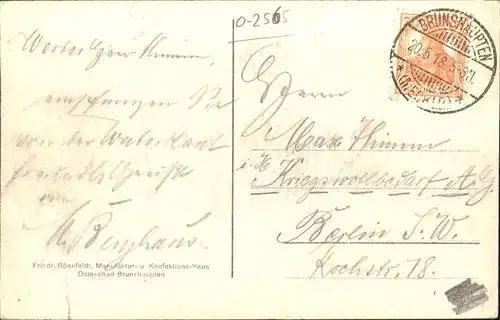 0-2565
BRUNSHAUPTEN
20.6.18.5-6N.
* (MECKLB) *
Werter Herr Thimm,
empfangen Sie
von der Waterkant
freundl. Grüße
von
Berghaus
Friedr. Rönnfeldt, Manufaktur- u. Konfektions-Haus
Ostseebad Brunshaupten
Herrn
Max Thimm
i. H. Kriegswollbedarf A. G.
Berlin S. W.
Kochstr. 18.